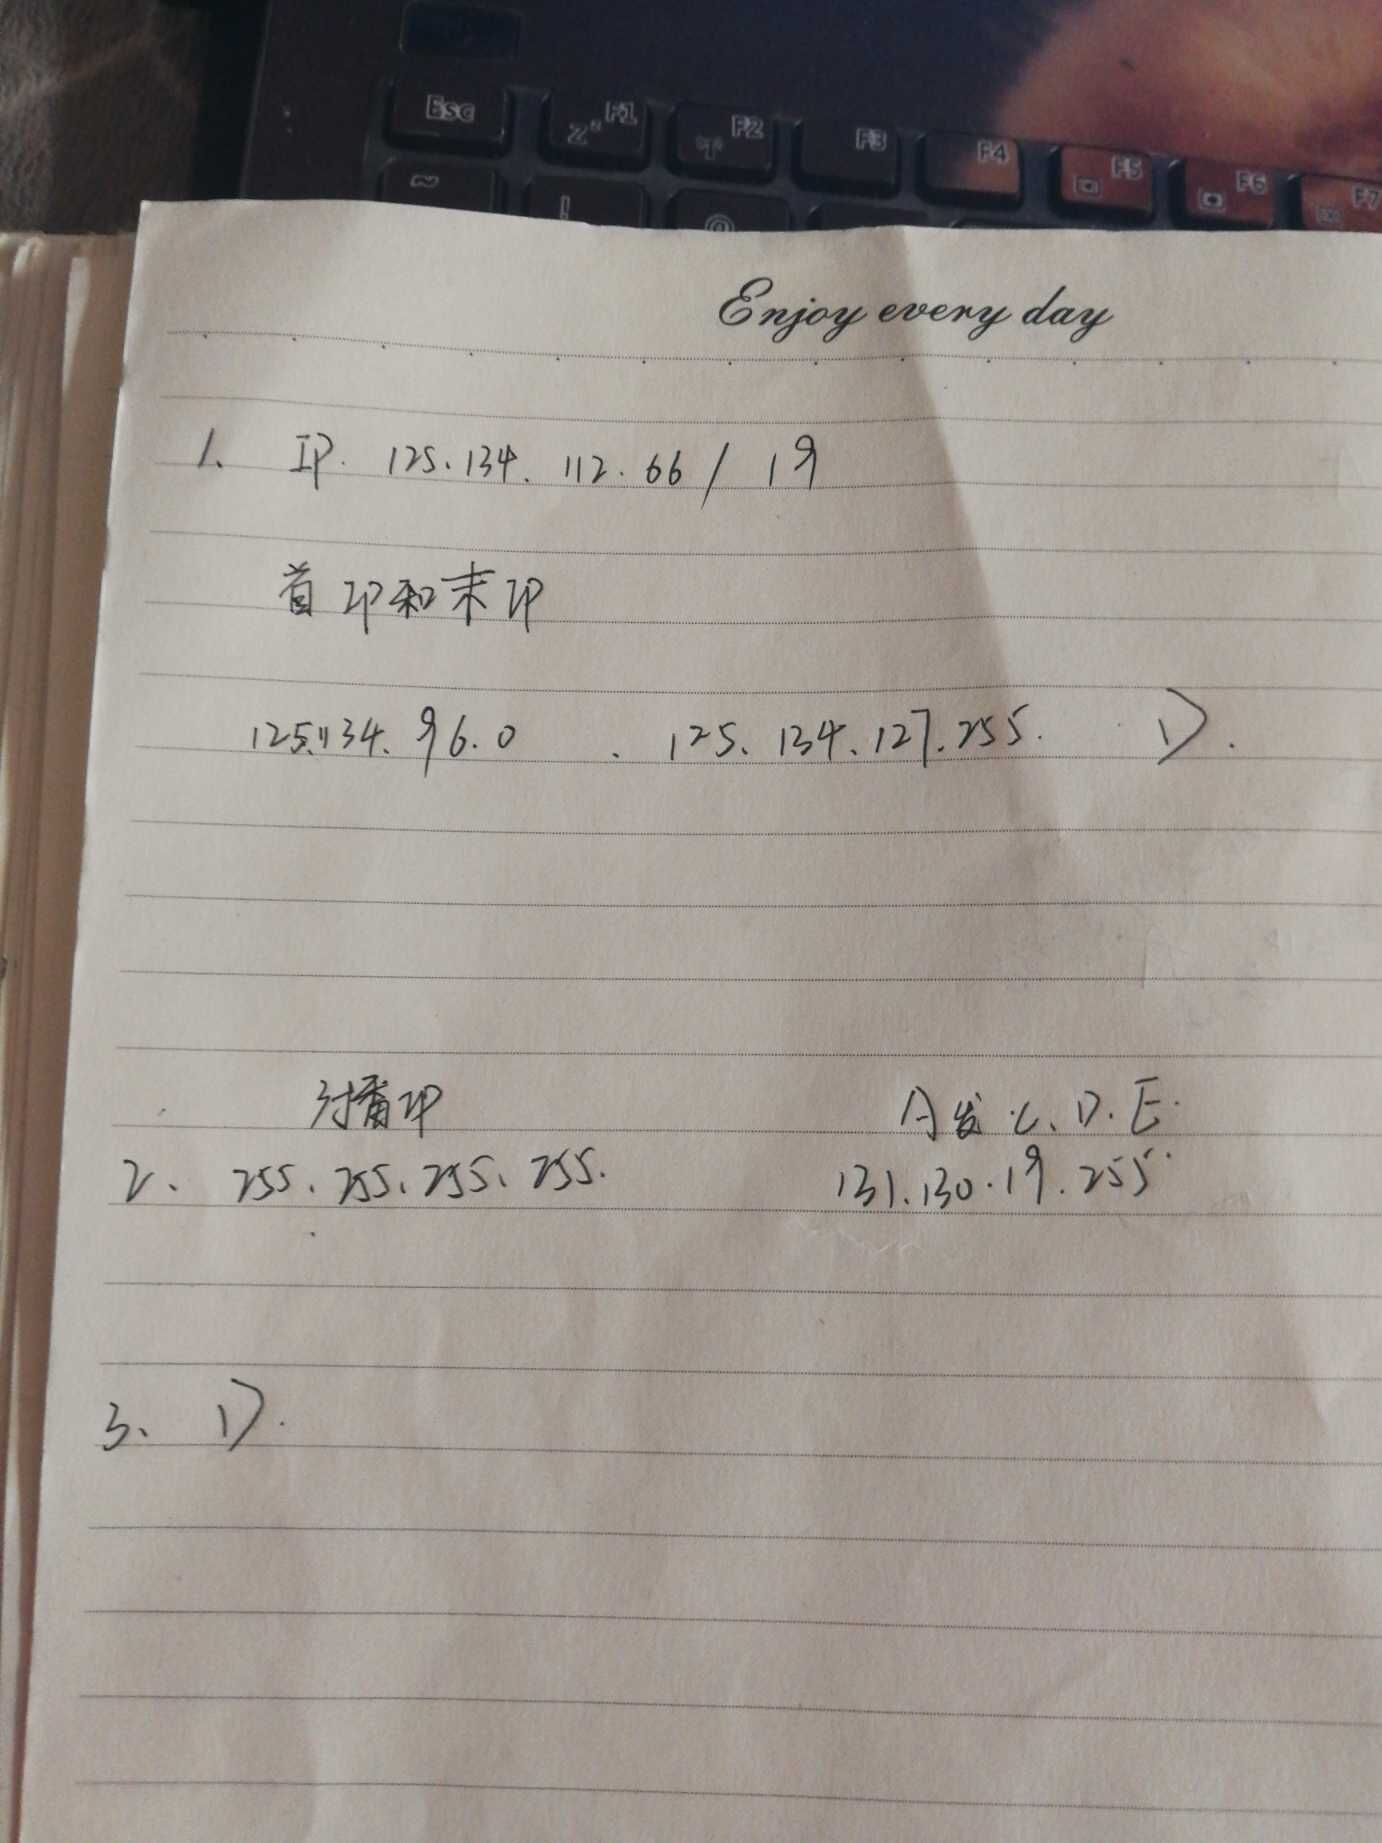 Esc F1 F2 F3 F4 F5 F6 F7
~ ! @
Enjoy every day
1. IP. 125.134.112.66 / 19
首IP和末IP
125.134.96.0 . 125.134.127.255. D.
对播IP A发.C.D.E.
2. 255.255.255.255. 131.130.19.255.
3. D.